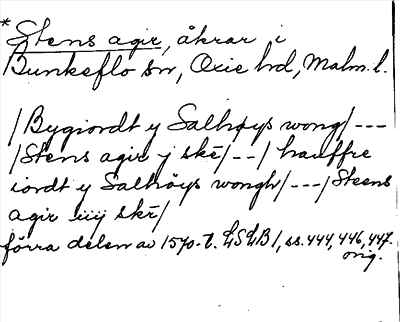 * Stens agir, åkrar i
Bunkeflo sn, Oxie hd, Malm. l.
/Bygiordt y Salhøys wong/---
/Stens agir y skē/--/ hauffre
iordt y Salhöys wongh/---/Steens
agir iiij skē/
förra delen av 1570-t. LSLB 1, ss. 444, 446, 447.
orig.